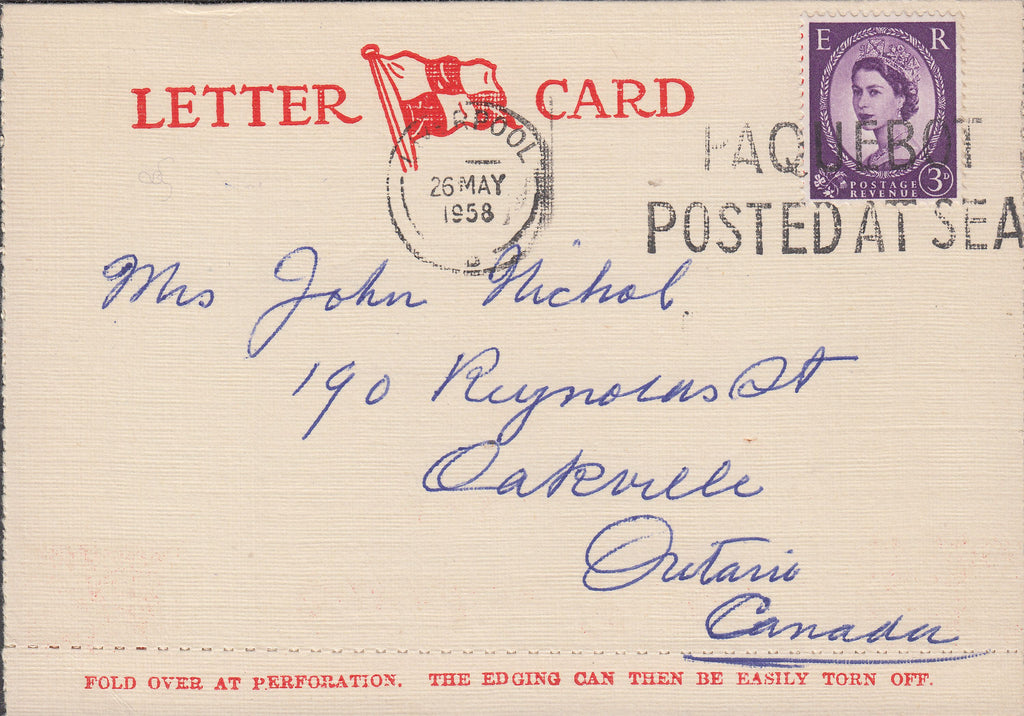 LETTER CARD
E R
POSTAGE
REVENUE
3D
LIVERPOOL
26 MAY
1958
PAQUEBOT
POSTED AT SEA
Mrs John Nichol
190 Reynolds St
Oakville
Ontario
Canada
FOLD OVER AT PERFORATION. THE EDGING CAN THEN BE EASILY TORN OFF.